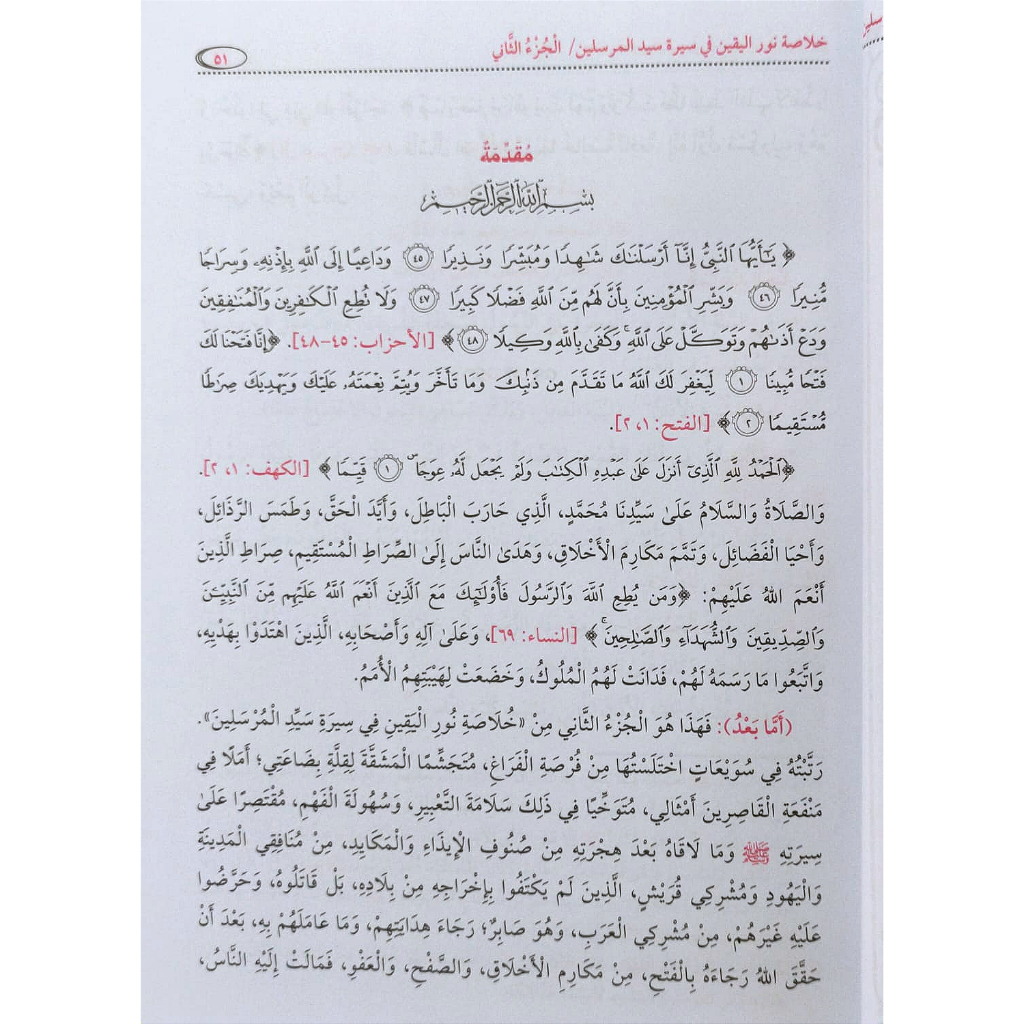 خلاصة نور اليقين في سيرة سيد المرسلين/ الْجُزْءُ الثَّانِي
٥١
مُقَدِّمَةٌ
بِسْمِ اللهِ الرَّحْمٰنِ الرَّحِيمِ
﴿ يَـٰٓأَيُّهَا ٱلنَّبِيُّ إِنَّآ أَرْسَلْنَـٰكَ شَـٰهِدًا وَمُبَشِّرًا وَنَذِيرًا ٤٥ وَدَاعِيًا إِلَى ٱللَّهِ بِإِذْنِهِۦ وَسِرَاجًا
مُّنِيرًا ٤٦ وَبَشِّرِ ٱلْمُؤْمِنِينَ بِأَنَّ لَهُم مِّنَ ٱللَّهِ فَضْلًا كَبِيرًا ٤٧ وَلَا تُطِعِ ٱلْكَـٰفِرِينَ وَٱلْمُنَـٰفِقِينَ
وَدَعْ أَذَىٰهُمْ وَتَوَكَّلْ عَلَى ٱللَّهِ ۚ وَكَفَىٰ بِٱللَّهِ وَكِيلًا ٤٨ ﴾ [الأحزاب: ٤٥-٤٨]. ﴿إِنَّا فَتَحْنَا لَكَ
فَتْحًا مُّبِينًا ١ لِّيَغْفِرَ لَكَ ٱللَّهُ مَا تَقَدَّمَ مِن ذَنۢبِكَ وَمَا تَأَخَّرَ وَيُتِمَّ نِعْمَتَهُۥ عَلَيْكَ وَيَهْدِيَكَ صِرَٰطًا
مُّسْتَقِيمًا ٢ ﴾ [الفتح: ١، ٢].
﴿ٱلْحَمْدُ لِلَّهِ ٱلَّذِىٓ أَنزَلَ عَلَىٰ عَبْدِهِ ٱلْكِتَـٰبَ وَلَمْ يَجْعَل لَّهُۥ عِوَجَاۜ ١ قَيِّمًا ﴾ [الكهف: ١، ٢].
وَالصَّلَاةُ وَالسَّلَامُ عَلَىٰ سَيِّدِنَا مُحَمَّدٍ، الَّذِي حَارَبَ الْبَاطِلَ، وَأَيَّدَ الْحَقَّ، وَطَمَسَ الرَّذَائِلَ،
وَأَحْيَا الْفَضَائِلَ، وَتَمَّمَ مَكَارِمَ الْأَخْلَاقِ، وَهَدَىٰ النَّاسَ إِلَىٰ الصِّرَاطِ الْمُسْتَقِيمِ، صِرَاطِ الَّذِينَ
أَنْعَمَ اللهُ عَلَيْهِمْ: ﴿وَمَن يُطِعِ ٱللَّهَ وَٱلرَّسُولَ فَأُو۟لَـٰٓئِكَ مَعَ ٱلَّذِينَ أَنْعَمَ ٱللَّهُ عَلَيْهِم مِّنَ ٱلنَّبِيِّـۧنَ
وَٱلصِّدِّيقِينَ وَٱلشُّهَدَآءِ وَٱلصَّـٰلِحِينَ ۚ ﴾ [النساء: ٦٩]، وَعَلَىٰ آلِهِ وَأَصْحَابِهِ، الَّذِينَ اهْتَدَوْا بِهَدْيِهِ،
وَاتَّبَعُوا مَا رَسَمَهُ لَهُمْ، فَدَانَتْ لَهُمُ الْمُلُوكُ، وَخَضَعَتْ لِهَيْبَتِهِمُ الْأُمَمُ.
(أَمَّا بَعْدُ): فَهَذَا هُوَ الْجُزْءُ الثَّانِي مِنْ «خُلَاصَةِ نُورِ الْيَقِينِ فِي سِيرَةِ سَيِّدِ الْمُرْسَلِينَ».
رَتَّبْتُهُ فِي سُوَيْعَاتٍ اخْتَلَسْتُهَا مِنْ فُرْصَةِ الْفَرَاغِ، مُتَجَشِّمًا الْمَشَقَّةَ لِقِلَّةِ بِضَاعَتِي؛ أَمَلًا فِي
مَنْفَعَةِ الْقَاصِرِينَ أَمْثَالِي، مُتَوَخِّيًا فِي ذَلِكَ سَلَامَةَ التَّعْبِيرِ، وَسُهُولَةَ الْفَهْمِ، مُقْتَصِرًا عَلَىٰ
سِيرَتِهِ ﷺ وَمَا لَاقَاهُ بَعْدَ هِجْرَتِهِ مِنْ صُنُوفِ الْإِيذَاءِ وَالْمَكَايِدِ، مِنْ مُنَافِقِي الْمَدِينَةِ
وَالْيَهُودِ وَمُشْرِكِي قُرَيْشٍ، الَّذِينَ لَمْ يَكْتَفُوا بِإِخْرَاجِهِ مِنْ بِلَادِهِ، بَلْ قَاتَلُوهُ، وَحَرَّضُوا
عَلَيْهِ غَيْرَهُمْ، مِنْ مُشْرِكِي الْعَرَبِ، وَهُوَ صَابِرٌ؛ رَجَاءَ هِدَايَتِهِمْ، وَمَا عَامَلَهُمْ بِهِ، بَعْدَ أَنْ
حَقَّقَ اللهُ رَجَاءَهُ بِالْفَتْحِ، مِنْ مَكَارِمِ الْأَخْلَاقِ، وَالصَّفْحِ، وَالْعَفْوِ، فَمَالَتْ إِلَيْهِ النَّاسُ،